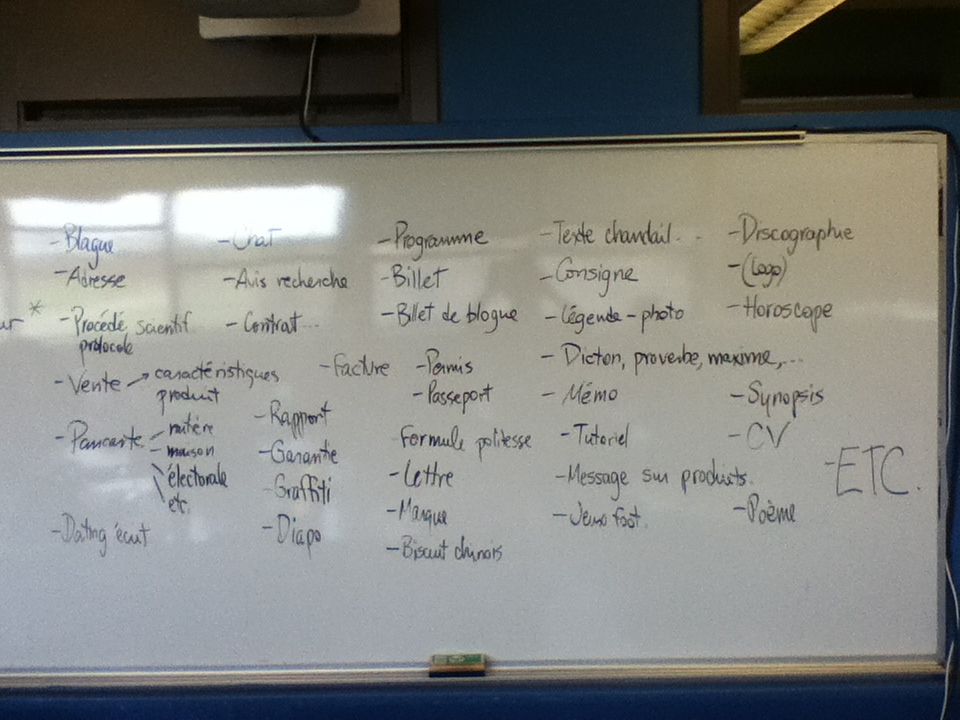 - Blague
- Adresse
*
- Procédé scientif
protocole
- Vente → caractéristiques
produit
- Pancarte - routière
- maison
\ électorale
\ etc.
- Dating écrit
- Chat
- Avis recherche
- Contrat...
- Facture
- Rapport
- Garantie
- Graffiti
- Diapo
- Programme
- Billet
- Billet de blogue
- Permis
- Passeport
- Formule politesse
- Lettre
- Marque
- Biscuit chinois
- Texte chandail...
- Consigne
- Légende-photo
- Dicton, proverbe, maxime,...
- Mémo
- Tutoriel
- Message sur produits.
- foot.
- Discographie
- (Logo)
- Horoscope
- Synopsis
- CV
- Poème
- ETC.